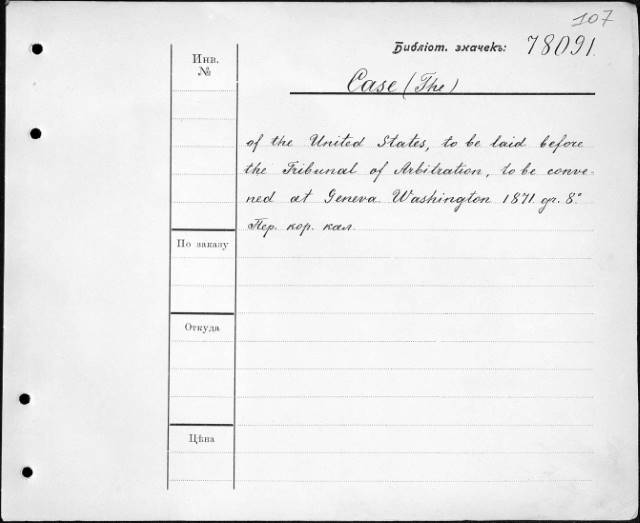 107
Библіот. значекъ: 78091.
Инв.
№
Case (The)
of the United States, to be laid before
the Tribunal of Arbitration, to be conve-
ned at Geneva. Washington 1871. gr. 8.°
Пер. кор. кал.
По заказу
Откуда
Цѣна